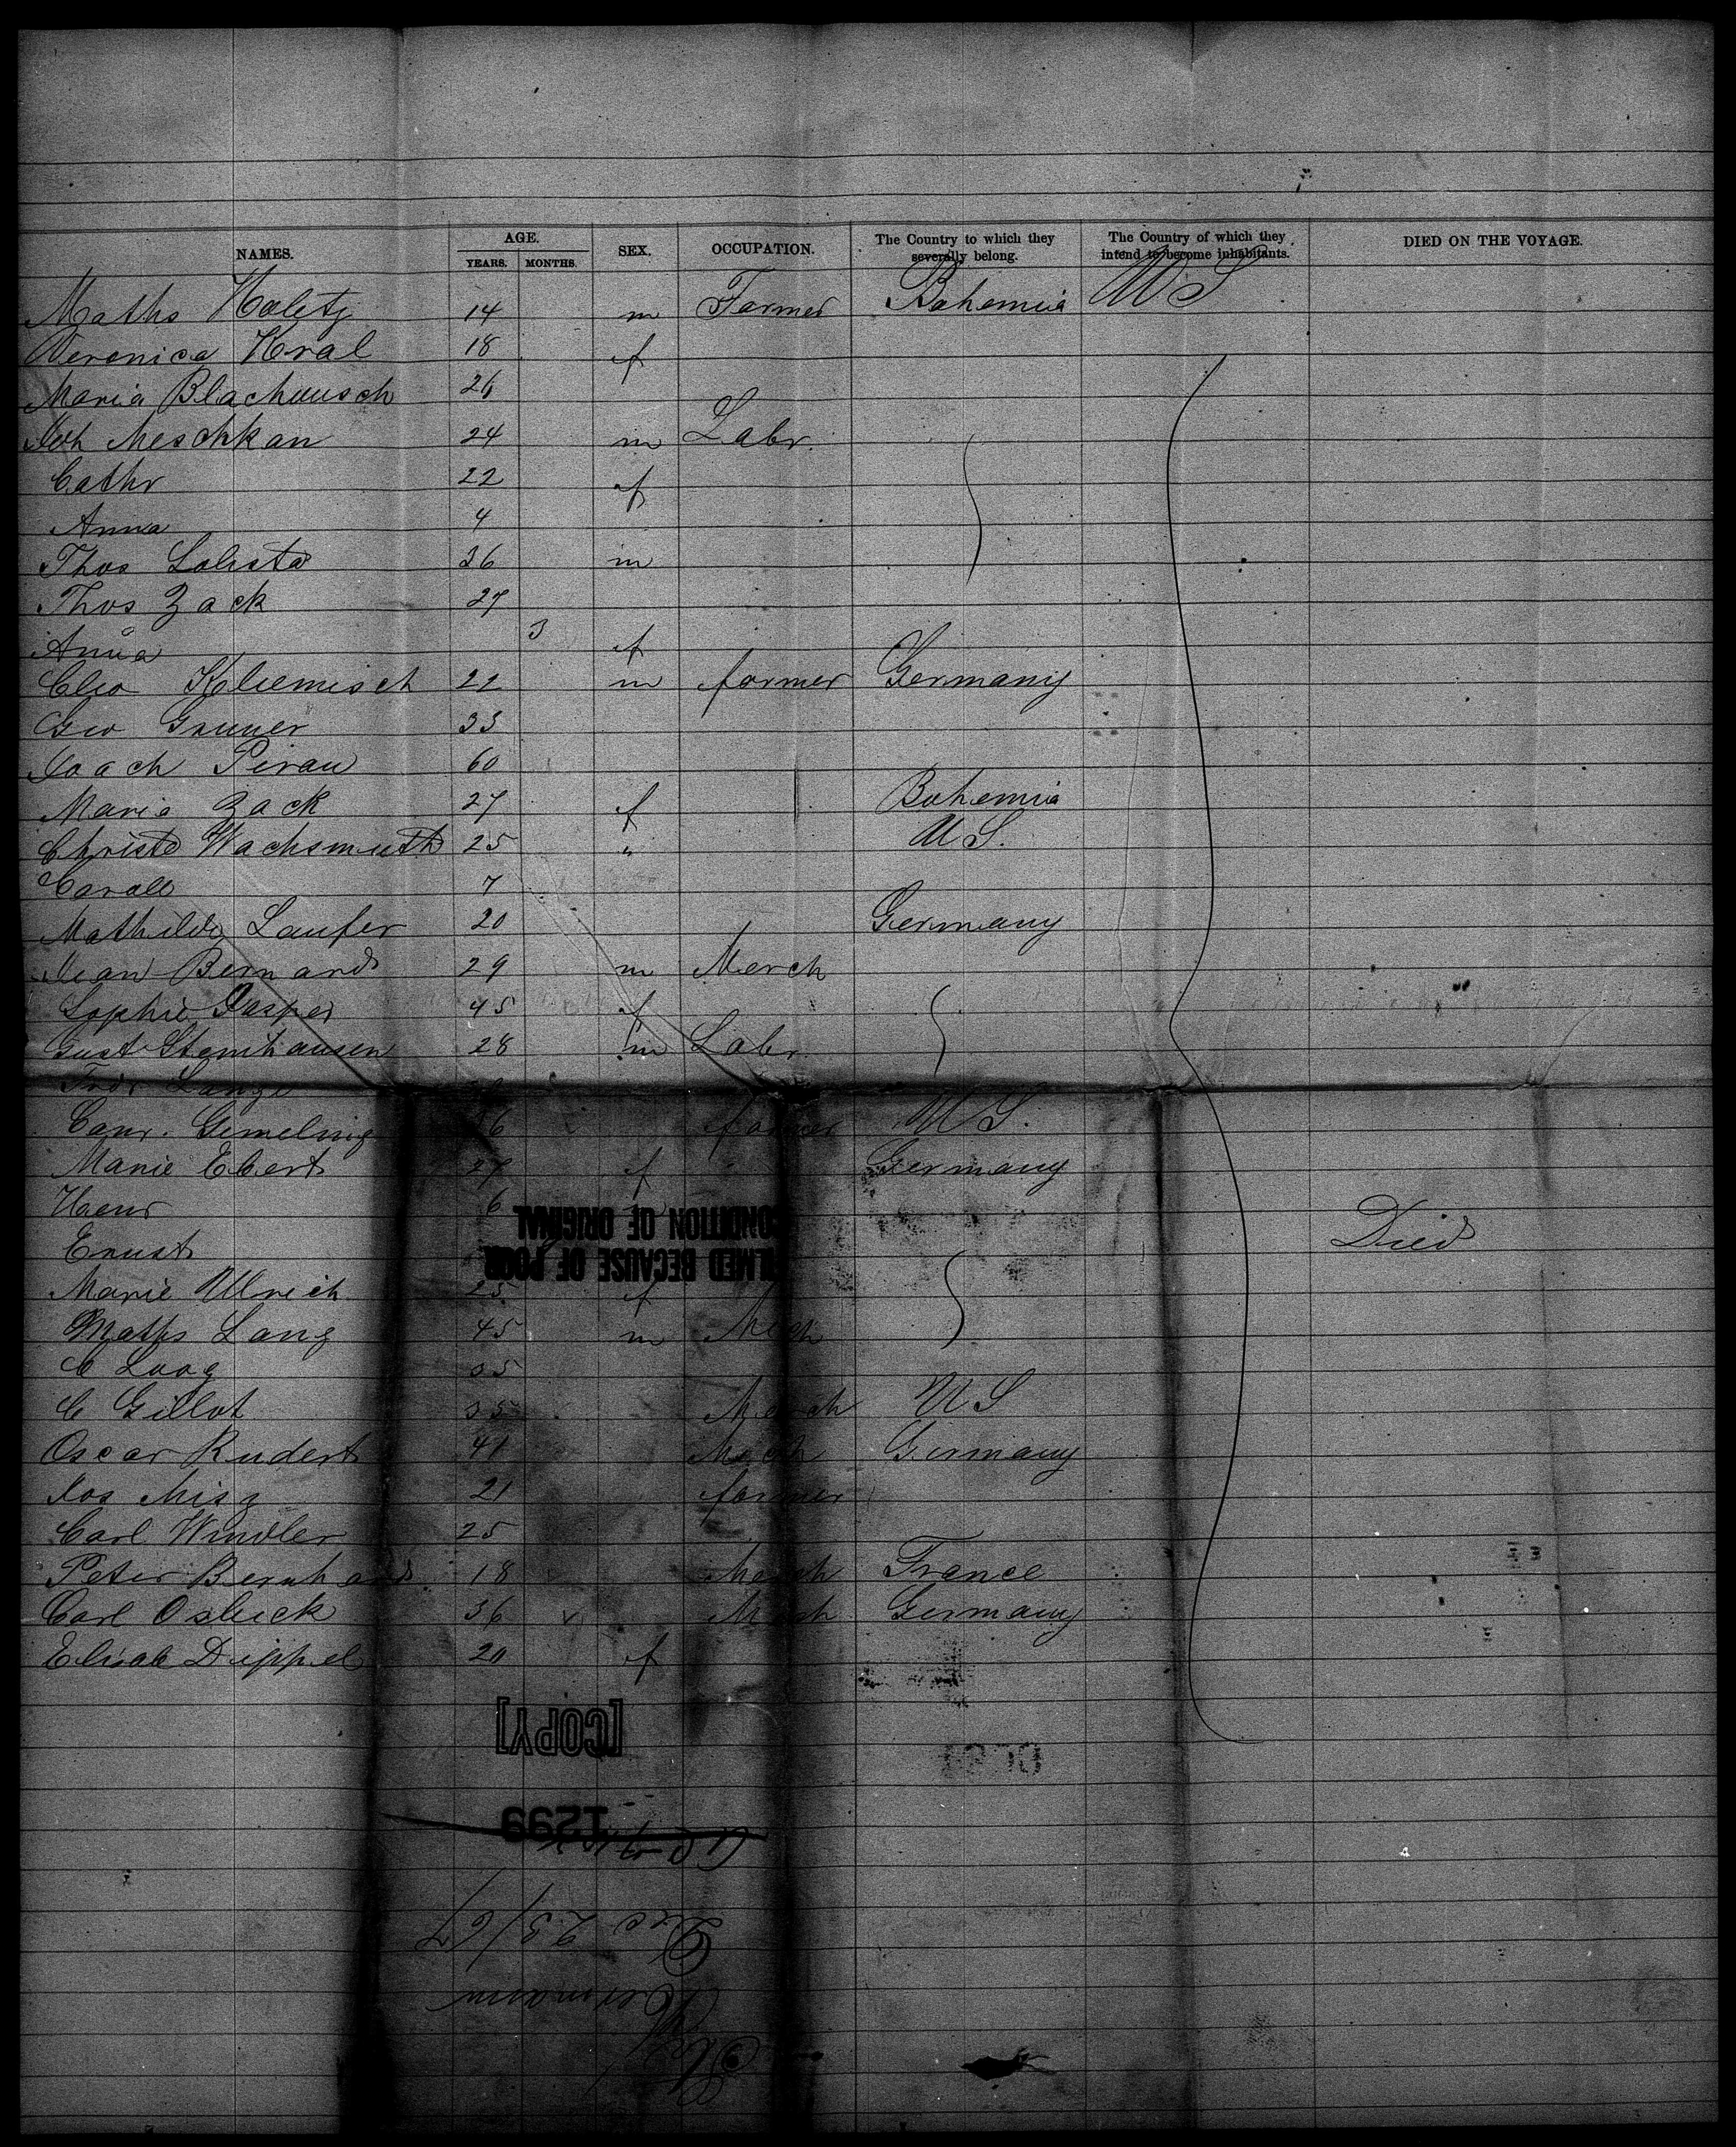 NAMES. AGE. YEARS. MONTHS. SEX. OCCUPATION. The Country to which they severally belong. The Country of which they intend to become inhabitants. DIED ON THE VOYAGE.
Maths Holetz 14 m Farmer Bohemia US
Veronica Kral 18 f
Maria Blachausch 26
Joh Meschkan 24 m Labr.
Cathr 22 f
Anna 4
Thos 36 m
Thos Zack 27
Anna 3 f
Kliemisch 22 m farmer Germany
Geo Gruner 33
Joach Pirau 60
Maria Zack 27 f Bohemia
Christe Wachsmuth 25 " U.S.
7
Mathilde Laufer 20 Germany
Jean Bernard 29 m Merch
Sophie Gasper 45 f
Gust Stemhausen 28 m Labr.
Fredr Lange
Gemeling 6 farmer U.S.
Marie Ebert 27 f Germany
Henr 6
Ernst Died
Marie Ulrich 25 f
Maths Lang 45 m
C Loog 35
C Gillot 35 Merch U.S
Oscar Rudert 41 Mech Germany
Jos Misz 21 farmer
Carl Windler 25
Peter Bernhard 18 France
Carl Osbeck 36 Germany
Elisab Dippel 20 f
CONDITION OF ORIGINAL
FILMED BECAUSE OF POOR
[COPY]
1299
Dec 23/67
Hermann